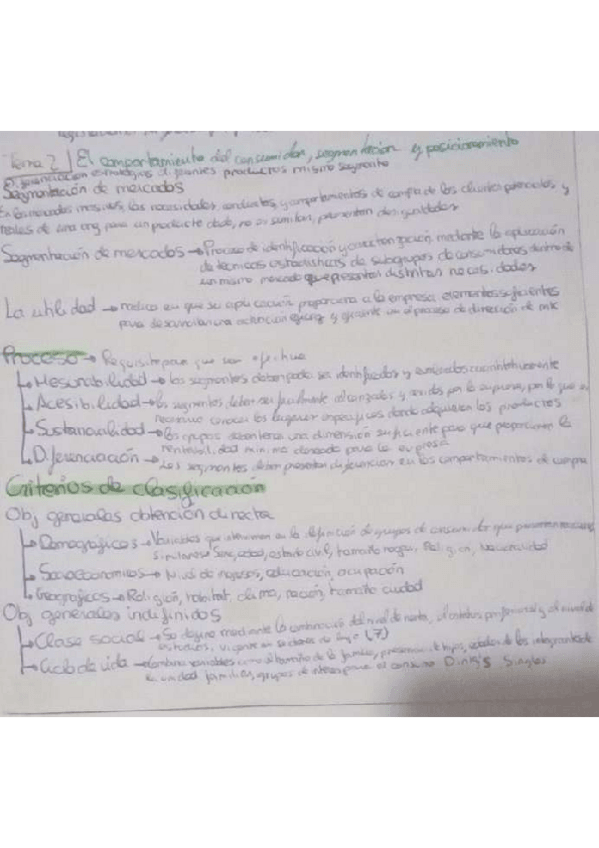 Tema 2 | El comportamiento del consumidor, segmentación y posicionamiento
Diferenciación estratégica de clientes productos mismo segmento
Segmentación de mercados
En los mercados masivos, las necesidades, conductas y comportamientos de compra de los clientes potenciales y
reales de una org para un producto dado, no son similares, presentan desigualdades
Segmentación de mercados → Proceso de identificación y caracterización mediante la aplicación
de técnicas estadísticas de subgrupos de consumidores dentro de
un mismo mercado que presentan distintas necesidades
La utilidad → medida en que su aplicación proporciona a la empresa elementos suficientes
para desarrollar una actuación eficaz y eficiente en el proceso de dirección de mk
Proceso → Requisitos para que sea efectiva
Mesurabilidad → los segmentos deben poder ser identificados y cuantitativamente
Accesibilidad → los segmentos deben ser fácilmente alcanzados y servidos por la empresa, por lo que es
necesario conocer los lugares específicos donde adquieren los productos
Sustancialidad → los grupos deben tener una dimensión suficiente para que proporcionen la
rentabilidad mínima deseada para la empresa
Diferenciación → Los segmentos deben presentar diferencias en los comportamientos de compra
Criterios de clasificación
Obj generales obtención directa
Demográficos → Variables que intervienen en la definición de grupos de consumidor que
Sexo, edad, estado civil, tamaño hogar, Religión, Nacionalidad
Socioeconómicos → Nivel de ingresos, educación, ocupación
Geográficos → Religión, habitat, clima, nación, tamaño ciudad
Obj generales indefinidos
Clase social → Se define mediante la combinación del nivel de renta, el profesional y el nivel de
estudios
Ciclo de vida → Combina variables como el tamaño de la familia, presencia de hijos, edades de los integrantes de
la unidad familiar, grupos de interés para el consumo Dink's Singles